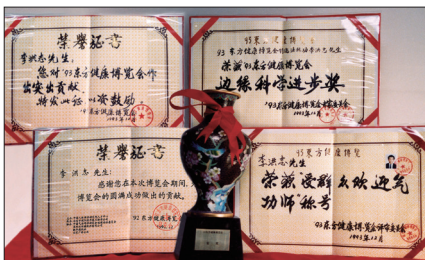 荣誉证书
李洪志先生:
您对'93东方健康博览会作
出突出贡献,
特发此证,以资鼓励
'93东方健康博览会
1993年12月
93东方健康博览会
李洪志先生
荣获'93东方健康博览会
边缘科学进步奖
'93东方健康博览会
1993年12月
荣誉证书
李洪志先生:
感谢您在本次博览会期间,
博览会的圆满成功做出的贡献。
93东方健康博览会
93东方健康博览
李洪志先生
荣获"受群众欢迎气
功师"称号
93东方健康博览会评审委员会
1993年12月